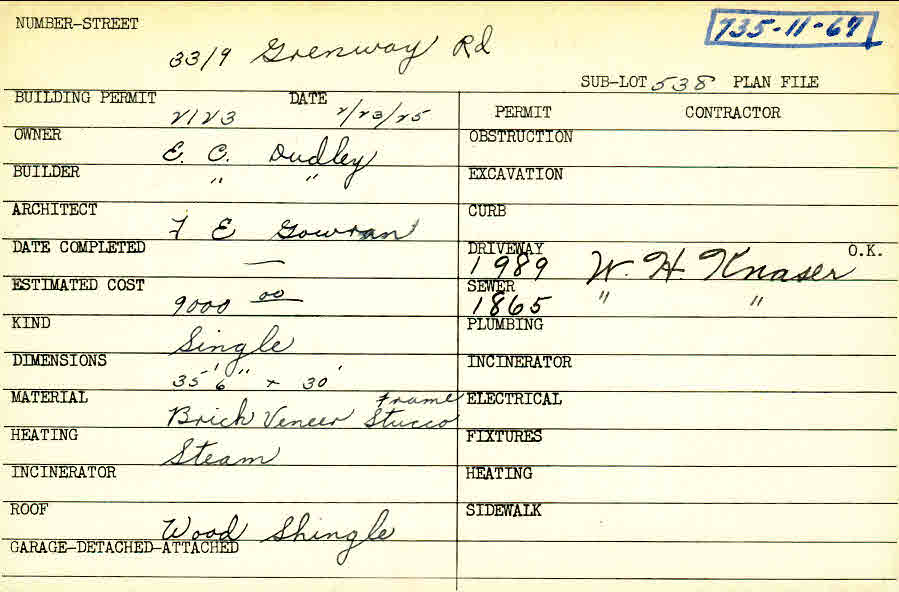 NUMBER-STREET
735-11-67
3319 Grenway Rd
SUB-LOT 538 PLAN FILE
BUILDING PERMIT DATE
2123 2/23/25
PERMIT CONTRACTOR
OWNER
E. C. Dudley
OBSTRUCTION
BUILDER
" "
EXCAVATION
ARCHITECT
F E Gowran
CURB
DATE COMPLETED
—
DRIVEWAY O.K.
1989 W. H. Knaser
ESTIMATED COST
9000 00
SEWER
1865 " "
KIND
Single
PLUMBING
DIMENSIONS
35' 6" x 30'
INCINERATOR
MATERIAL
Frame
Brick Veneer Stucco
ELECTRICAL
HEATING
Steam
FIXTURES
INCINERATOR
HEATING
ROOF
Wood Shingle
SIDEWALK
GARAGE-DETACHED-ATTACHED